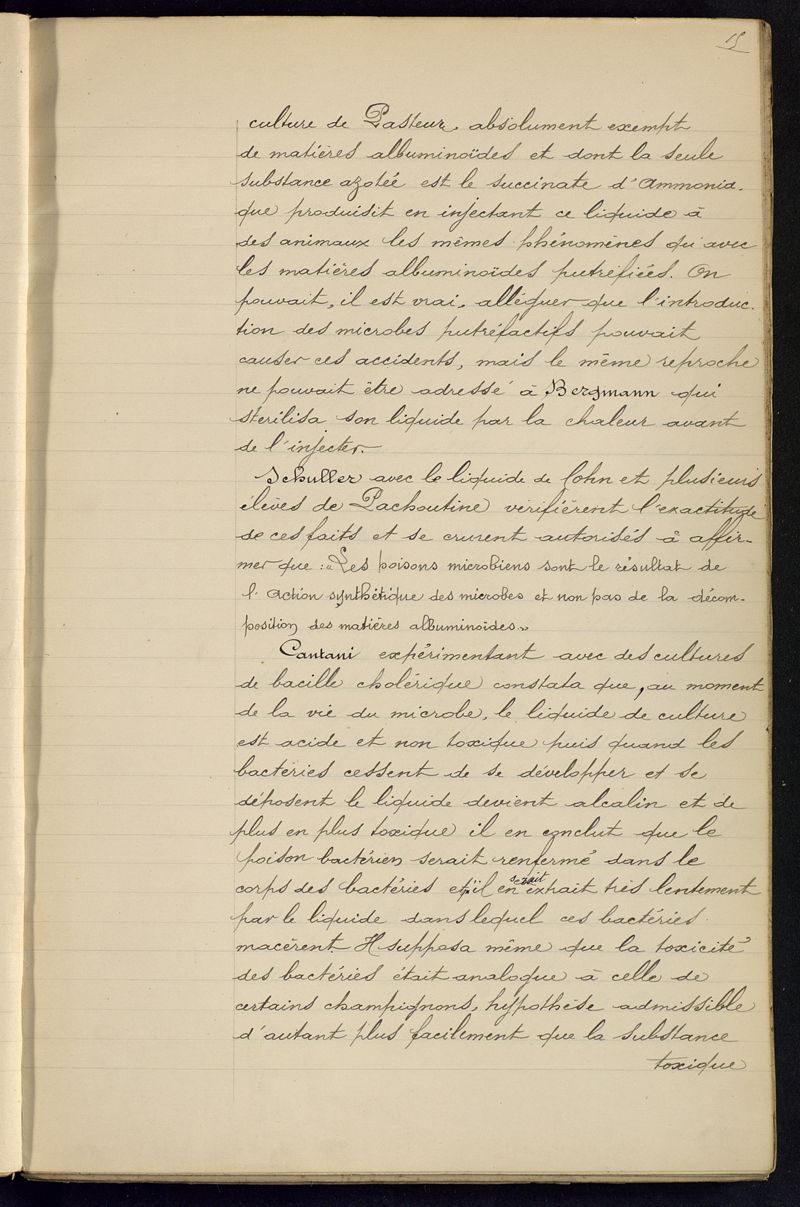 15
culture de Pasteur, absolument exempt
de matières albuminoïdes et dont la seule
substance azotée est le succinate d'Ammonia-
que produisit en injectant ce liquide à
des animaux les mêmes phénomènes qu'avec
les matières albuminoïdes putréfiées. On
pouvait, il est vrai, alléguer que l'introduc-
tion des microbes putréfactifs pouvait
causer ces accidents, mais le même reproche
ne pouvait être adressé à Bergmann qui
stérilisa son liquide par la chaleur avant
de l'injecter.
Schuller avec le liquide de Cohn et plusieurs
élèves de Pachoutine vérifièrent l'exactitude
de ces faits et se crurent autorisés à affir-
mer que : « Les poisons microbiens sont le résultat de
l'action synthétique des microbes et non pas de la décom-
position des matières albuminoïdes »
Cantani expérimentant avec des cultures
de bacille cholérique constata que, au moment
de la vie du microbe, le liquide de culture
est acide et non toxique puis quand les
bactéries cessent de se développer et se
déposent le liquide devient alcalin et de
plus en plus toxique il en conclut que le
poison bactérien serait renfermé dans le
corps des bactéries et qu'il en serait extrait très lentement
par le liquide dans lequel ces bactéries
macèrent. Il supposa même que la toxicité
des bactéries était analogue à celle de
certains champignons, hypothèse admissible
d'autant plus facilement que la substance
toxique